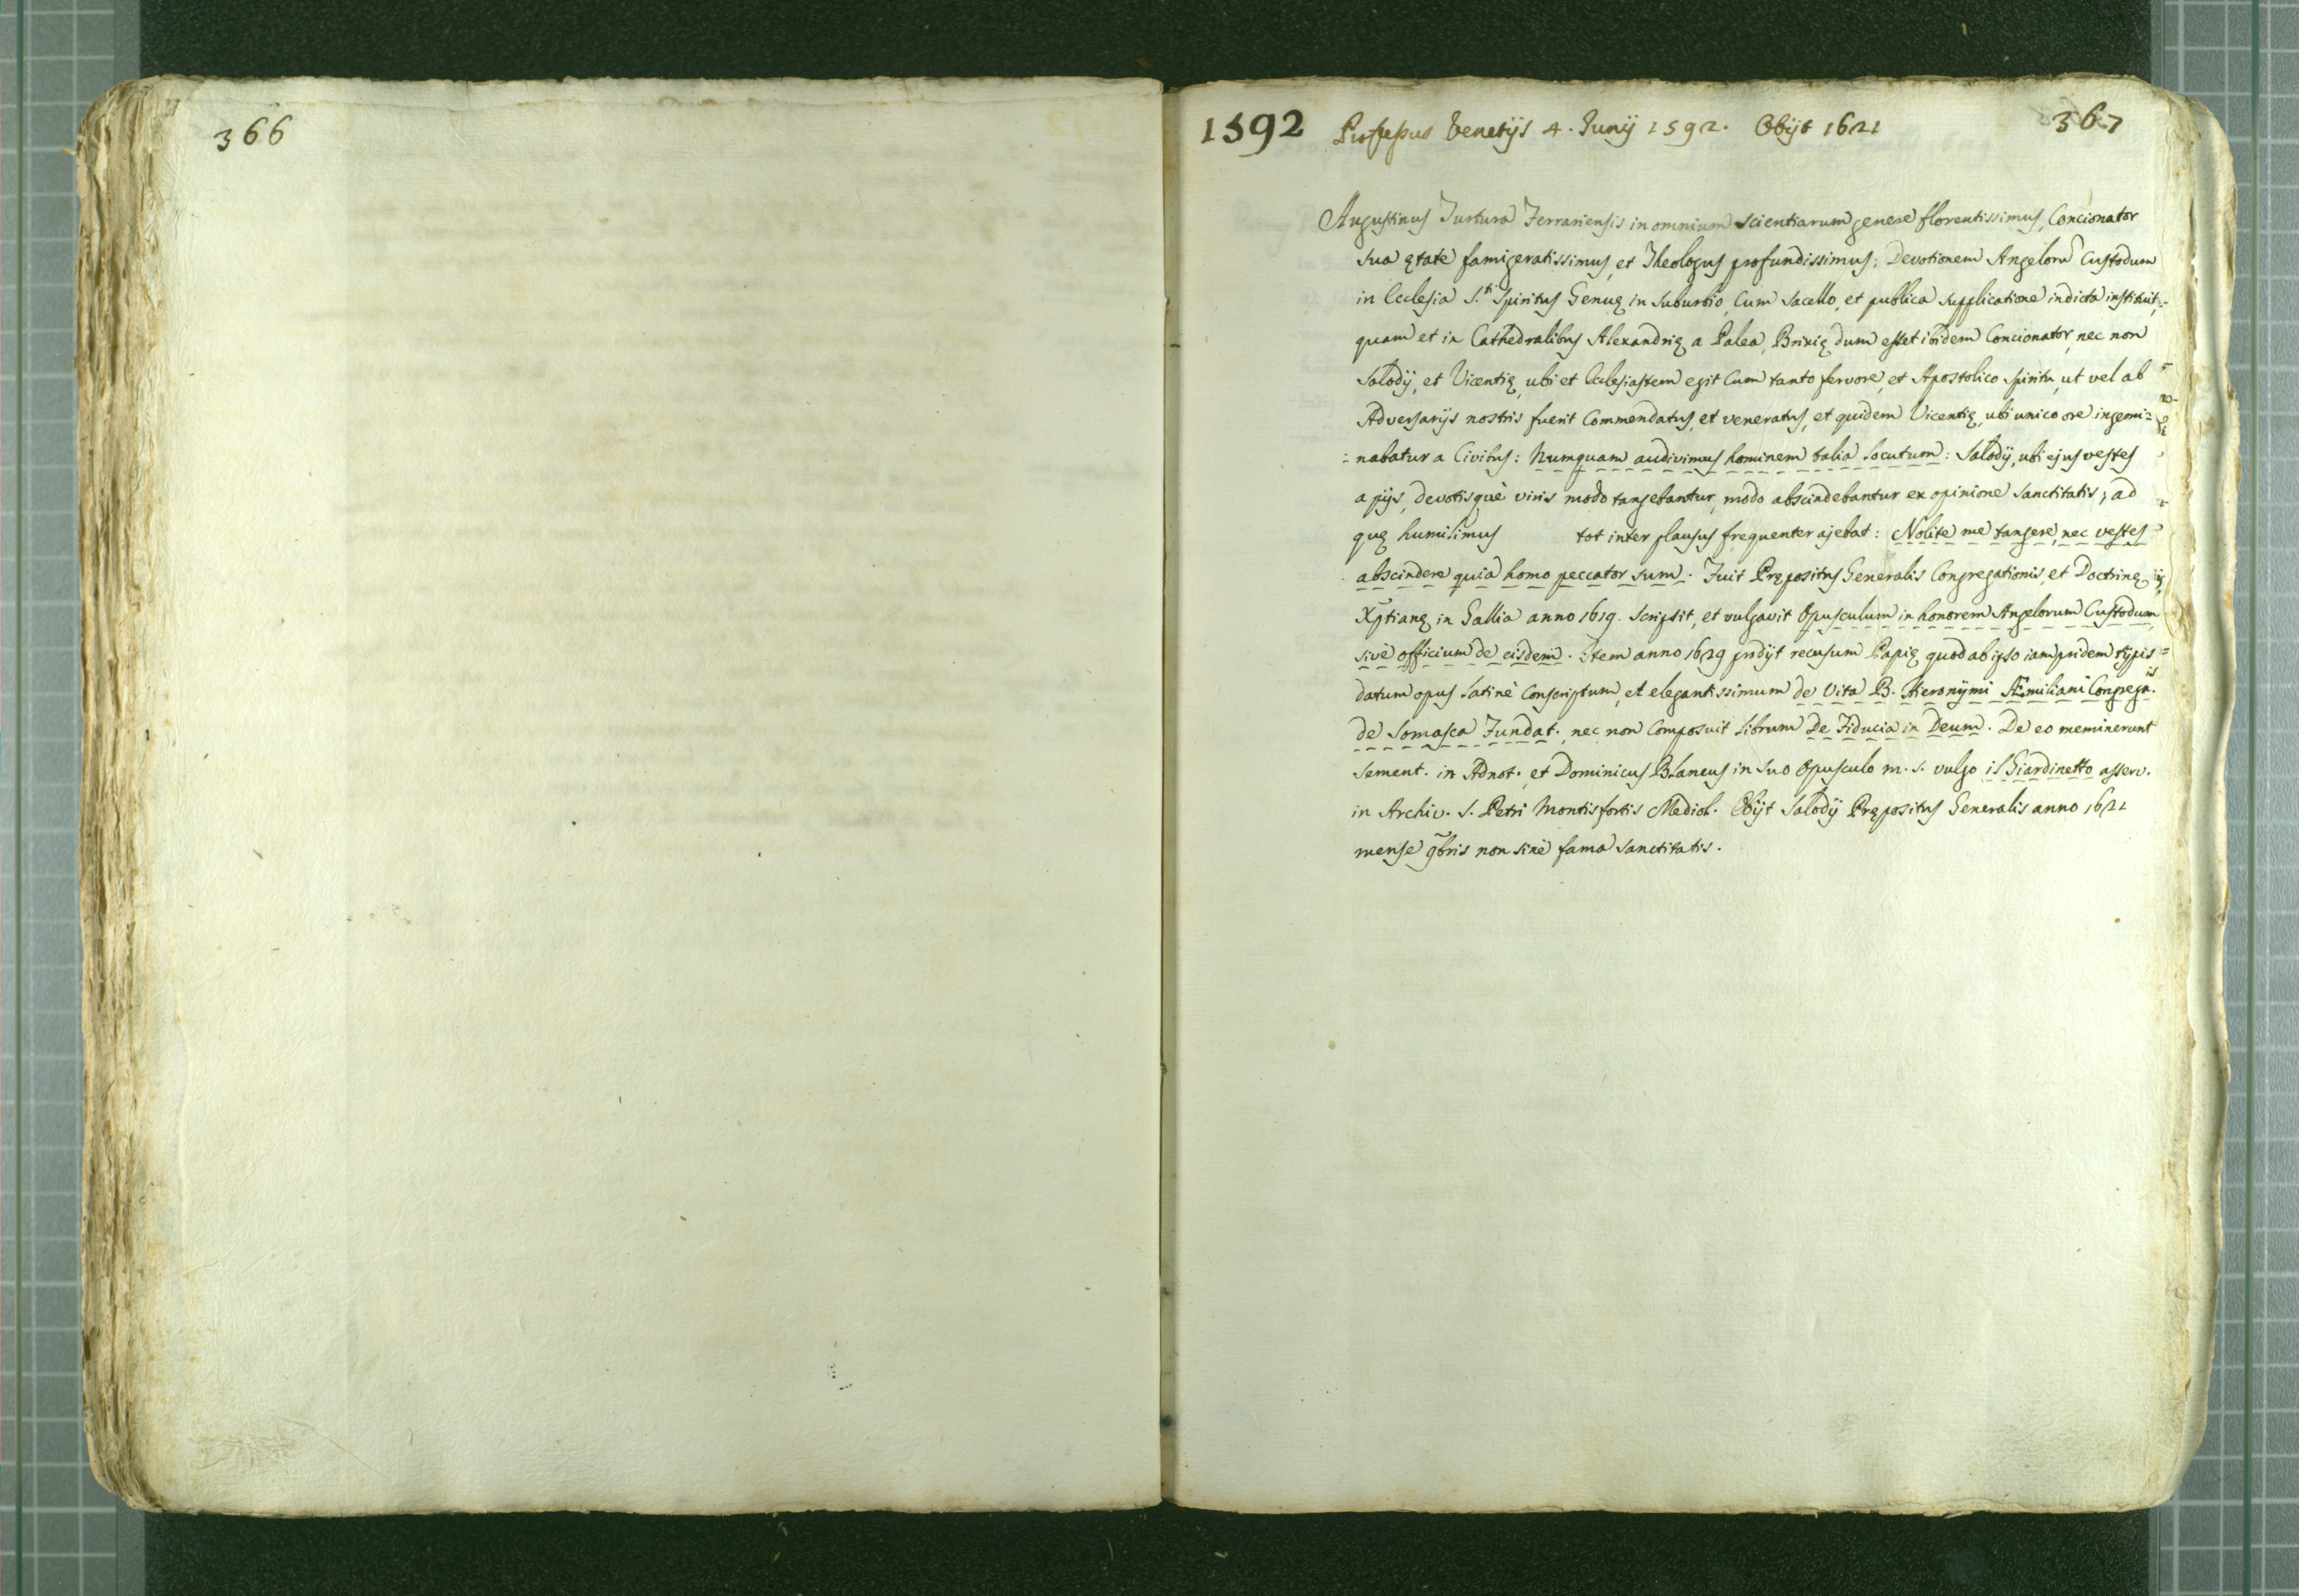 366
1592 Professus Venetijs 4. Junij 1592. Obijt 1621 367
Augustinus Turtura Ferrariensis in omnium scientiarum genere florentissimus, Concionator
sua ętate famigeratissimus, et Theologus profundissimus; Devotionem Angelorũ Custodum
in Ecclesia S.ti Spiritus Genuę in suburbio, cum sacello, et publica supplicatione indicta instituit,
quam et in Cathedralibus Alexandrię a Palea, Brixię dum esset ibidem Concionator, nec non
Salodij, et Vicentię, ubi et Ecclesiastem egit cum tanto fervore, et Apostolico spiritu, ut vel ab
Adversarijs nostris fuerit commendatus, et veneratus, et quidem Vicentię, ubi unico ore ingemi=
=nabatur a Civibus: Numquam audivimus hominem talia locutum: Salodij, ubi ejus vestes
a pijs, devotisquè viris modo tangebantur, modo abscindebantur ex opinione sanctitatis; ad
quę humilimus tot inter plausus frequenter ajebat: Nolite me tangere, nec vestes
abscindere quia homo peccator sum. Fuit Prępositus Generalis Congregationis, et Doctrinę
Xp̃tianę in Gallia anno 1619. Scripsit, et vulgavit Opusculum in honorem Angelorum Custodum,
sivè officium de eisdem. Item anno 1629 prodijt recusum Papię quod ab ipso iampridem typis
datum opus latinè conscriptum, et elegantissimum de Vita B. Hieronymi Æmiliani Congrega.is
de Somasca Fundat. nec non composuit librum De Fiducia in Deum. De eo meminerunt
Sement. in Adnot. et Dominicus Blancus in suo Opusculo m. s. vulgo il Giardinetto asserv.
in Archiv. S. Petri Montisfortis Mediol. Obijt Salodij Prępositus Generalis anno 1621
mense 9bris non sinè fama sanctitatis.